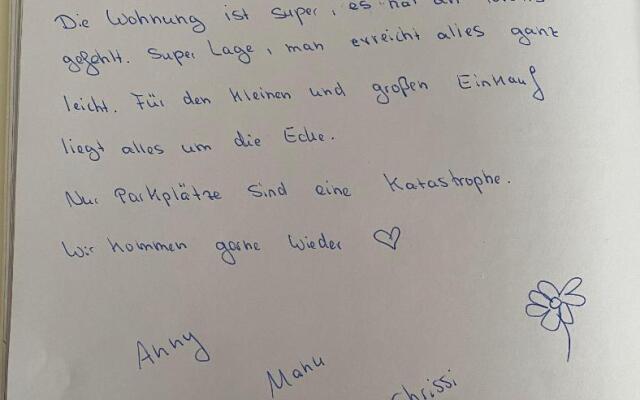 Die Wohnung ist super, es hat an
gefehlt. Super Lage, man erreicht alles ganz
leicht. Für den kleinen und großen Einkauf
liegt alles um die Ecke.
Nur Parkplätze sind eine Katastrophe.
Wir kommen gerne wieder ♡
Anny
Manu
Chrissi